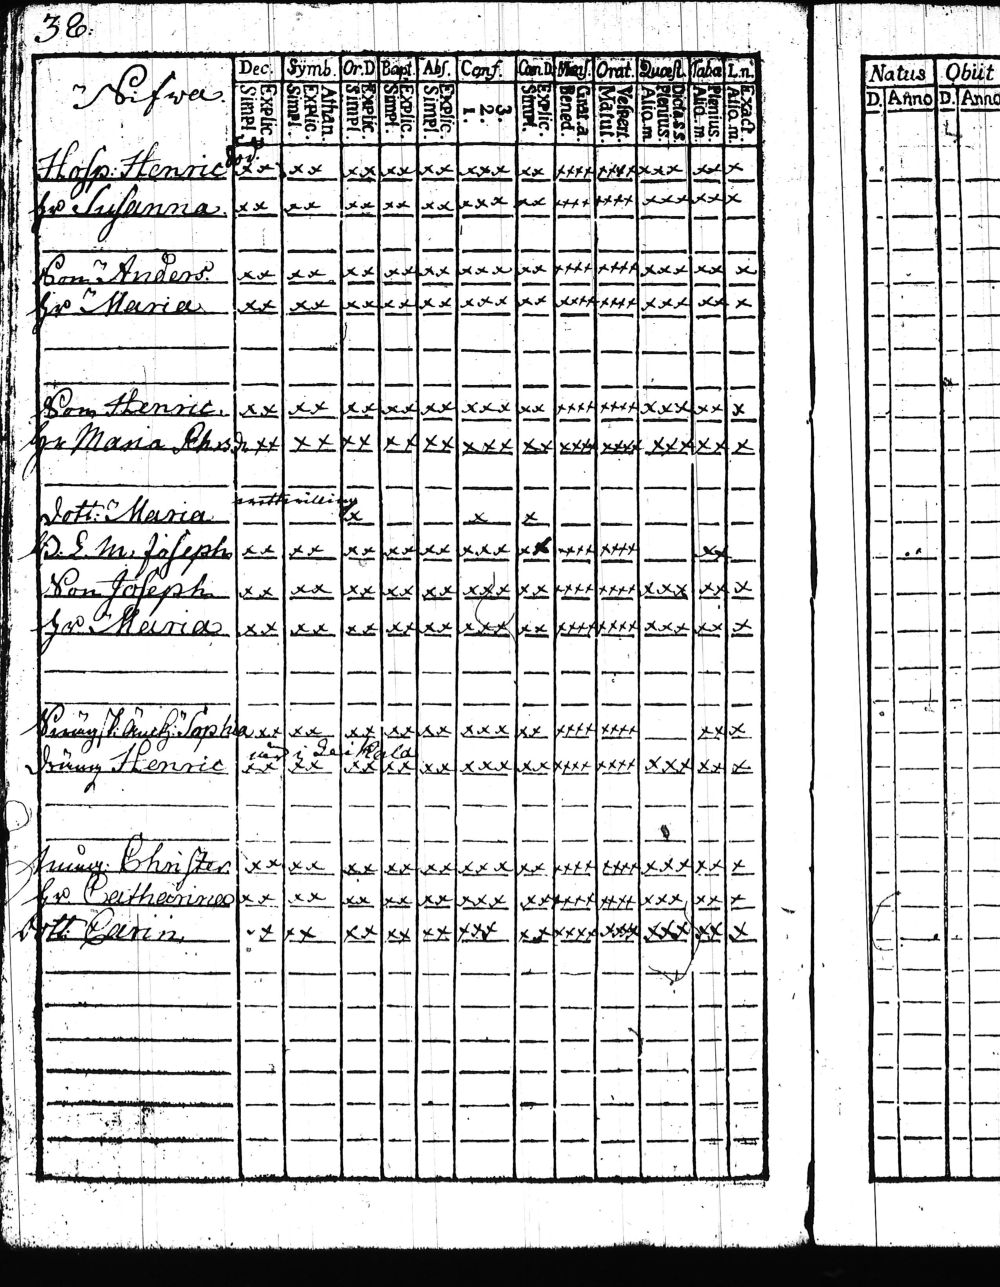 38.
Nifwa.
Dec. Symb. Or.D Bapt. Abs. Conf. Cæn.D. Mens. Orat. Quæst. Taba L.n.
Simpl. Explic. Simpl. Explic. Athan. Simpl. Explic. Simpl. Explic. Simpl. Explic. 1. 2. 3. Simpl. Explic. Bened. Grat.a. Matut. Vespert. Aliq.m Plenius. Dict.s s. Aliq.m. Plenius. Aliq.m. Exact
Natus Obiit
D. Anno D. Anno
Hosp: Henric xx xx xx xx xx xxx xx xxxx xxxx xxx xx x
hr Susanna. xx xx xx xx xx xxx xx xxxx xxxx xxx xx x
Son Anders. xx xx xx xx xx xxx xx xxxx xxxx xxx xx x
hr Maria xx xx xx xx xx xxx xx xxxx xxxx xxx xx x
Son Henric. xx xx xx xx xx xxx xx xxxx xxxx xxx xx x
hr Maria xx xx xx xx xx xxx xx xxxx xxxx xxx xx x
Dott: Maria x x x
Joseph xx xx xx xx xx xxx xx xxxx xxxx xx
Son Joseph xx xx xx xx xx xxx xx xxxx xxxx xxx xx x
hr Maria xx xx xx xx xx xxx xx xxxx xxxx xxx xx x
Sophia xx xx xx xx xx xxx xx xxxx xxxx xx x
Dräng Henric xx xx xx xx xx xxx xx xxxx xxxx xxx xx x
Christer. xx xx xx xx xx xxx xx xxxx xxxx xxx xx x
hr Catharina xx xx xx xx xx xxx xx xxxx xxxx xxx xx x
Dott. Carin. x xx xx xx xx xxx xx xxxx xxxx xxx xx x